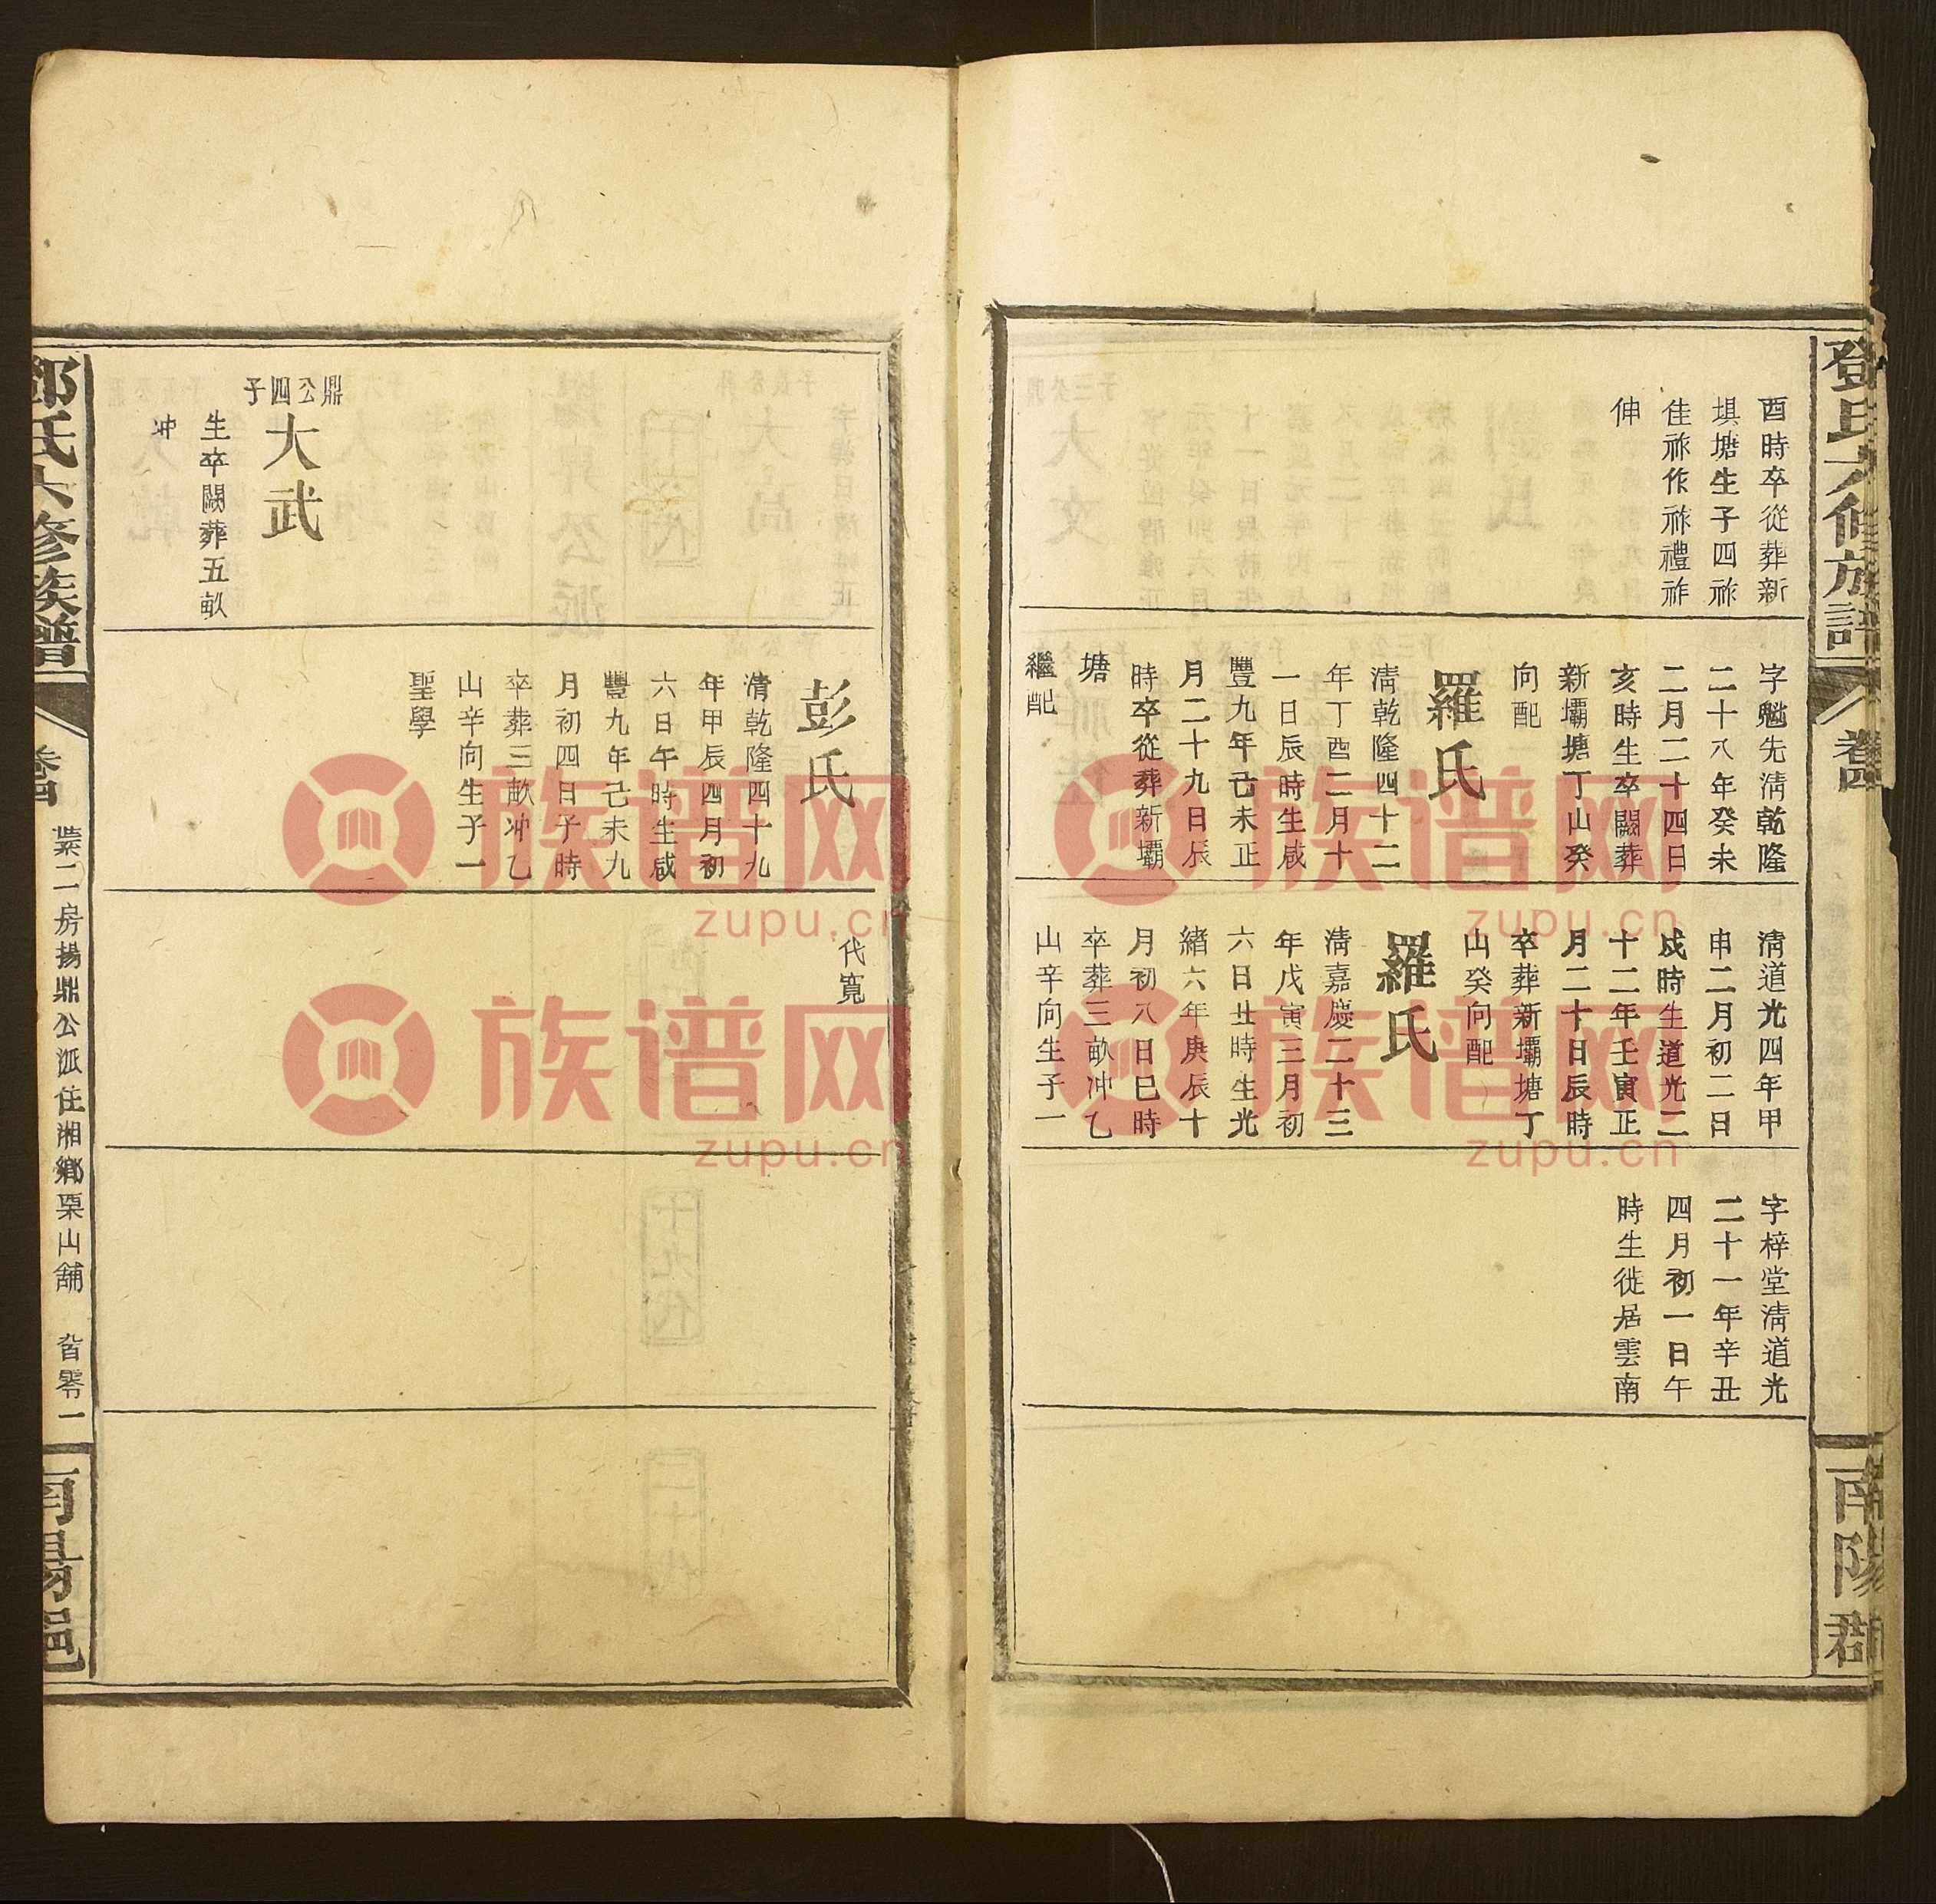 鄧氏六修族譜
卷四
南陽郡
酉時卒從葬新
塤塘生子四祚
佳祚作祚禮祚
伸
字魁先淸乾隆
二十八年癸未
二月二十四日
亥時生卒闕葬
新壩塘丁山癸
向配
羅氏
淸乾隆四十二
年丁酉二月十
一日辰時生咸
豐九年己未正
月二十九日辰
時卒從葬新壩
塘
繼配
淸道光四年甲
申二月初二日
戌時生道光二
十二年壬寅正
月二十日辰時
卒葬新壩塘丁
山癸向配
羅氏
淸嘉慶二十三
年戊寅三月初
六日丑時生光
緖六年庚辰十
月初八日巳時
卒葬三畝冲乙
山辛向生子一
字梓堂淸道光
二十一年辛丑
四月初一日午
時生徙居雲南
鼎公四子
大武
生卒闕葬五畝
冲
彭氏
淸乾隆四十九
年甲辰四月初
六日午時生咸
豐九年己未九
月初四日子時
卒葬三畝冲乙
山辛向生子一
聖學
代寬
鄧氏六修族譜
卷四
二房揚鼎公派住湘鄉栗山舖
零一
族谱网
zupu.cn
族谱网
zupu.cn
族谱网
zupu.cn
族谱网
zupu.cn